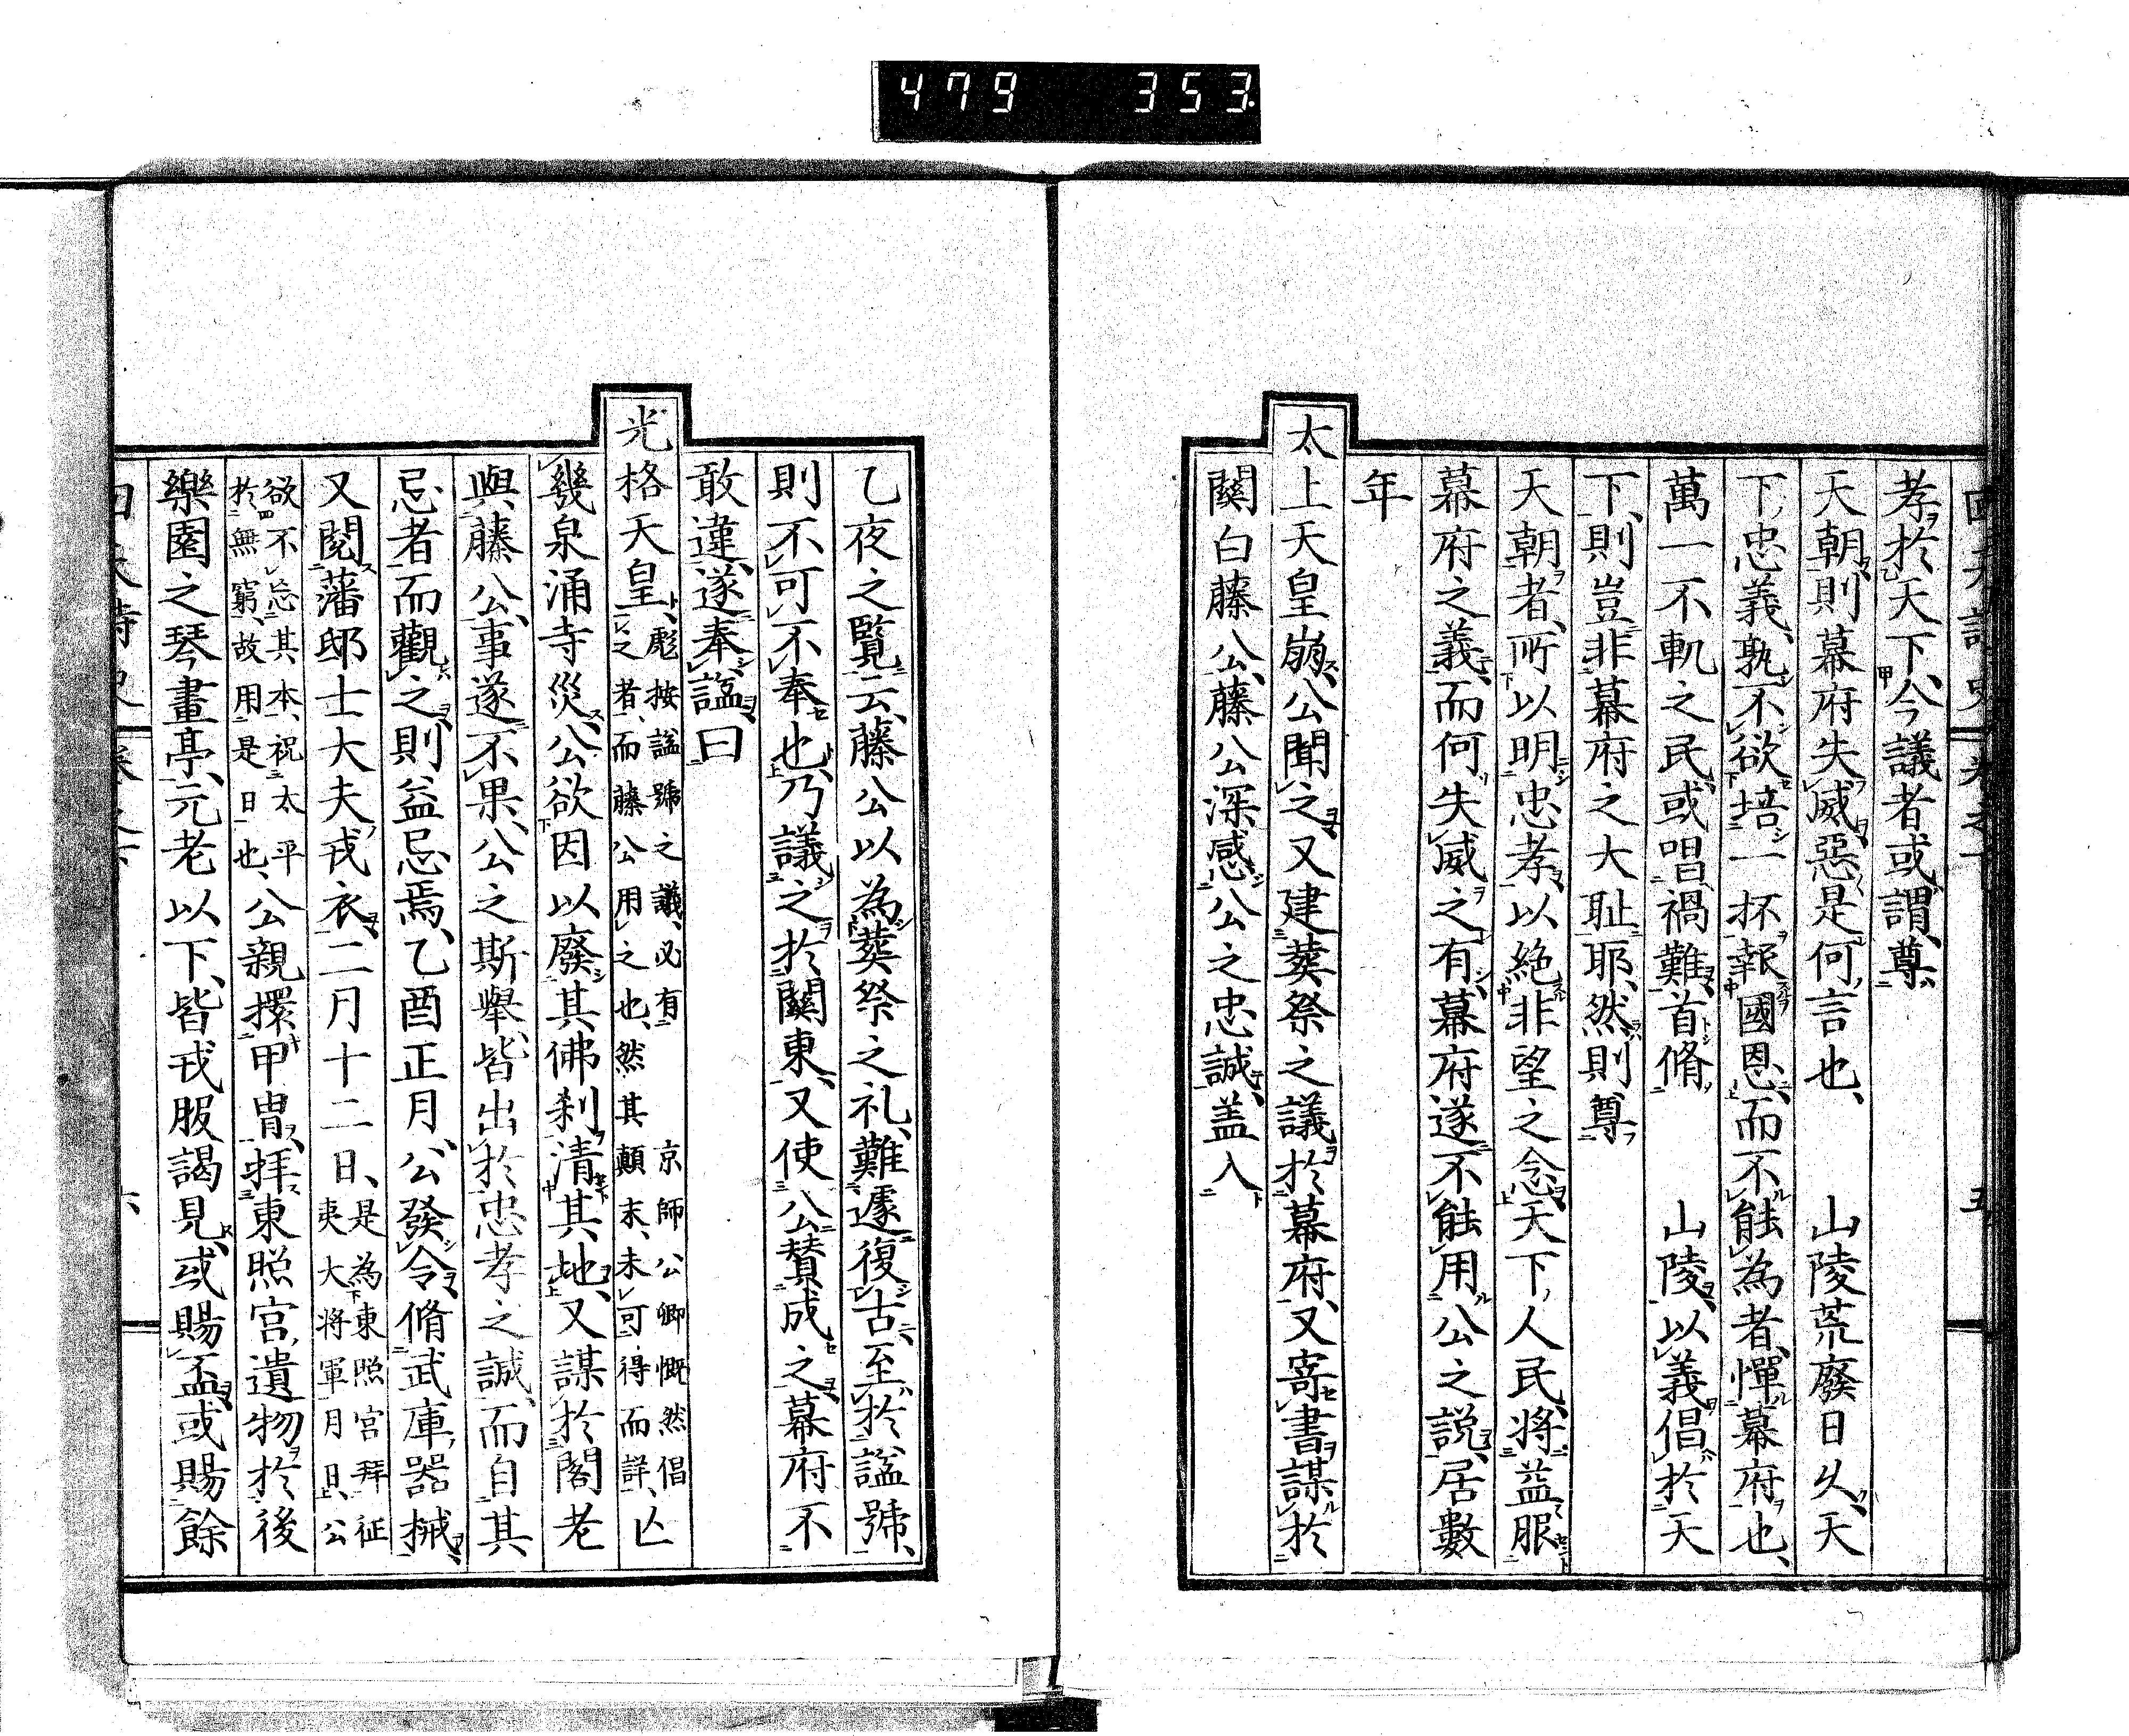 479 353
孝於天下、今議者或謂、尊
天朝、則幕府失威、惡是何言也、 山陵荒廢日久、天
下忠義、孰不欲培一抔報國恩、而不能為者、憚幕府也、
萬一不軌之民、或唱禍難、首脩 山陵、以義倡於天
下、則豈非幕府之大耻耶、然則尊
天朝者、所以明忠孝、以絶非望之念、天下人民、將益服
幕府之義、而何失威之有、幕府遂不能用公之説、居數
年
太上天皇崩、公聞之、又建葬祭之議於幕府、又寄書謀於
關白藤公、藤公深感公之忠誠、盖入
乙夜之覧云、藤公以為葬祭之礼、難遽復古、至於謚號、
則不可不奉也、乃議之於關東、又使公賛成之、幕府不
敢違、遂奉謚曰
光格天皇、彪按謚號之議、必有 京師公卿慨然倡
之者、而藤公用之也、然其顛末、未可得而詳、亾
幾泉涌寺災、公欲因以廢其佛刹、清其地、又謀於閣老
與藤公、事遂不果、公之斯舉、皆出於忠孝之誠、而自其
忌者而觀之、則益忌焉、乙酉正月、公發令脩武庫器械、
又閲藩邸士大夫戎衣、二月十二日、是為東照宮拜征
夷大將軍月日、公
欲不忘其本、祝太平
於無窮、故用是日也、公親擐甲冑、拝東照宮遺物於後
樂園之琴畫亭、元老以下、皆戎服謁見、或賜盃、或賜餘
六